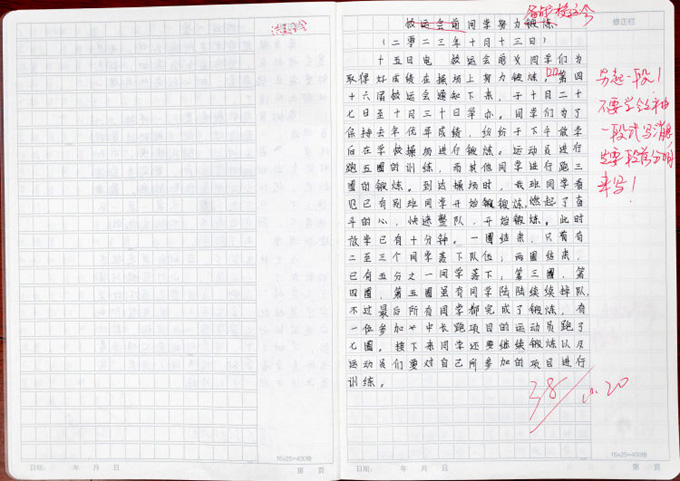 16×25=400格
日期: 年 月 日
第 页
校运会前同学努力锻炼
备战校运会
修正栏
(二零二三年十月十三日)
十五日电 校运会前夕同学们为
取得好成绩在操场上努力锻炼。第四
十六届校运会通知下来,于十月二十
七日至十月三十日举办。同学们为了
保持去年优异成绩,纷纷于下午放学
后在学校操场进行锻炼。运动员进行
跑五圈的训练,而其他同学进行跑三
圈的锻炼。到达操场时,我班同学看
见已有别班同学开始锻炼,燃起了奋
斗的心,快速整队,开始锻炼。此时
放学已有十分钟。一圈结束,只有有
二至三个同学落下队伍;两圈结束,
已有五分之一同学落下;第三圈,第
四圈,第五圈虽有同学陆陆续续掉队,
不过最后所有同学都完成了锻炼,有
一位参加中长跑项目的运动员跑了
七圈。接下来同学还要继续锻炼以及
运动员们要对自己所参加的项目进行
训练。
另起一段!
不要学这种
一段式写消息
要段落分明
来写!
38
10.20
16×25=400格
日期: 年 月 日
第 页